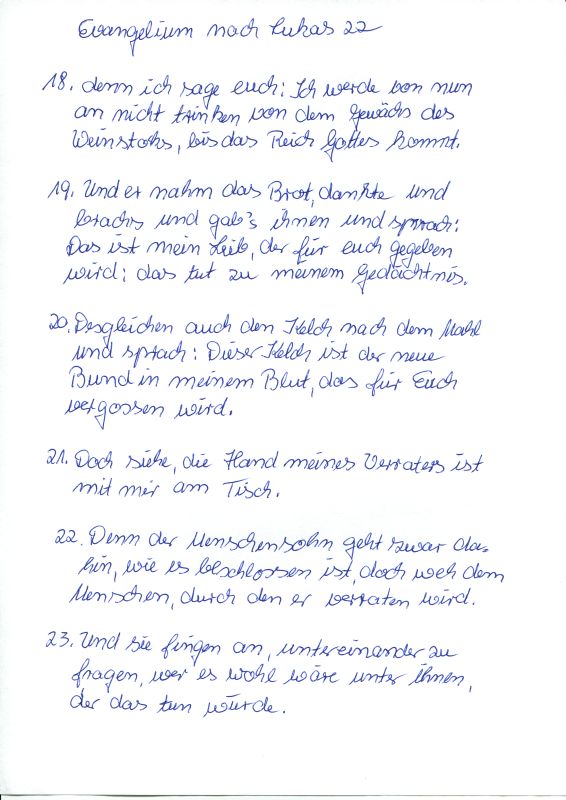 Evangelium nach Lukas 22
18. denn ich sage euch: Ich werde von nun
an nicht trinken von dem Gewächs des
Weinstoks, bis das Reich Gottes kommt.
19. Und er nahm das Brot, dankte und
brachs und gab's ihnen und sprach:
Das ist mein Leib, der für euch gegeben
wird; das tut zu meinem Gedächtnis.
20. Desgleichen auch den Kelch nach dem Mahl
und sprach: Dieser Kelch ist der neue
Bund in meinem Blut, das für Euch
vergossen wird.
21. Doch siehe, die Hand meines Verraters ist
mit mir am Tisch.
22. Denn der Menschensohn geht zwar da-
hin, wie es beschlossen ist, doch weh dem
Menschen, durch den er verraten wird.
23. Und sie fingen an, untereinander zu
fragen, wer es wohl wäre unter ihnen,
der das tun würde.